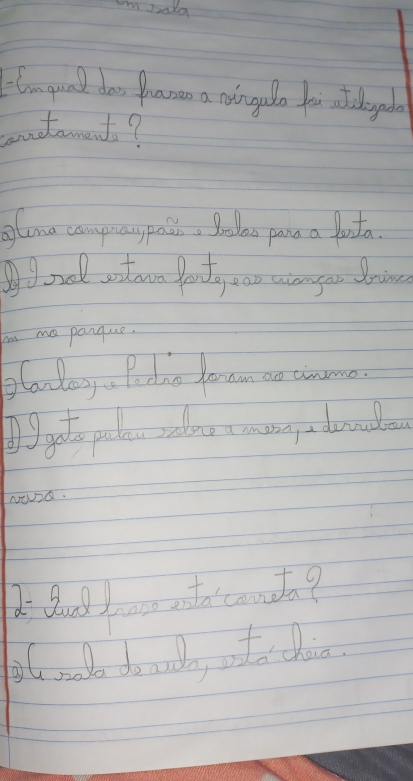 em sala
1-Em qual das frases a vírgula foi utilizada
corretamente?
a) Ana comprou, pães e bolos para a festa.
b) O sol estava forte, e as crianças brinca
m no parque.
c) Carlos, e Pedro foram ao cinema.
D) O gato pulou sobre a mesa, e derrubou
vaso.
2- Qual frase está correta?
a) A sala de aula, está cheia.